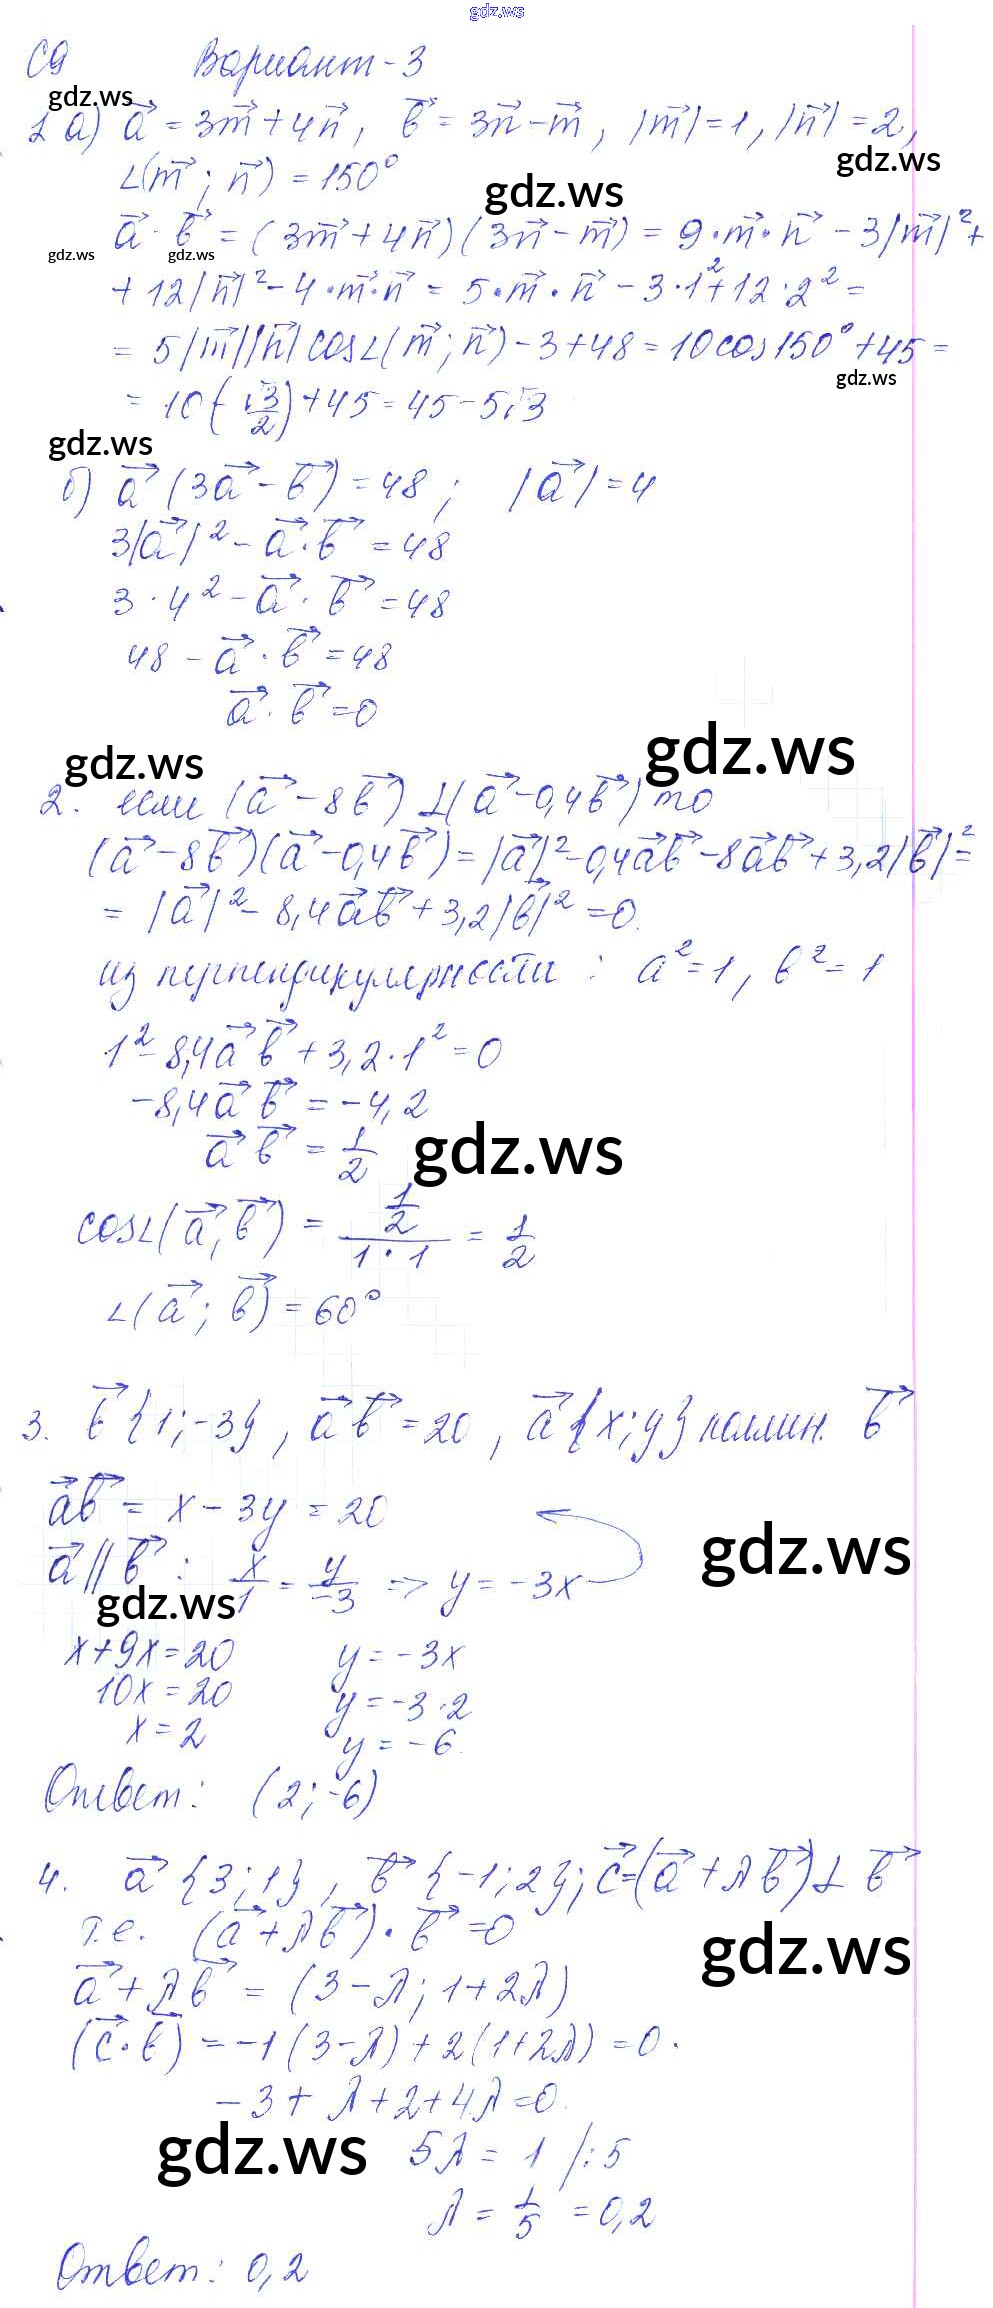 gdz.ws
С9 Вариант-3
gdz.ws
1 а) a⃗ = 3m⃗ + 4n⃗, в⃗ = 3n⃗ - m⃗, |m⃗| = 1, |n⃗| = 2,
gdz.ws
∠(m⃗; n⃗) = 150°
gdz.ws
a⃗ · в⃗ = (3m⃗ + 4n⃗)(3n⃗ - m⃗) = 9·m⃗·n⃗ - 3|m⃗|² +
gdz.ws gdz.ws
+ 12|n⃗|² - 4·m⃗·n⃗ = 5·m⃗·n⃗ - 3·1² + 12·2² =
= 5|m⃗||n⃗| cos∠(m⃗; n⃗) - 3 + 48 = 10cos150° + 45 =
gdz.ws
= 10(-√3/2) + 45 = 45 - 5√3
gdz.ws
б) a⃗ (3a⃗ - в⃗) = 48; |a⃗| = 4
3|a⃗|² - a⃗·в⃗ = 48
3·4² - a⃗·в⃗ = 48
48 - a⃗·в⃗ = 48
a⃗·в⃗ = 0
gdz.ws gdz.ws
2. если (a⃗ - 8в⃗) ⊥ (a⃗ - 0,4в⃗) то
(a⃗ - 8в⃗)(a⃗ - 0,4в⃗) = |a⃗|² - 0,4a⃗в⃗ - 8a⃗в⃗ + 3,2|в⃗|² =
= |a⃗|² - 8,4a⃗в⃗ + 3,2|в⃗|² = 0.
из перпендикулярности: a² = 1, в² = 1
1² - 8,4a⃗в⃗ + 3,2·1² = 0
-8,4a⃗в⃗ = -4,2
a⃗в⃗ = 1/2
gdz.ws
cos∠(a⃗, в⃗) = (1/2)/(1·1) = 1/2
∠(a⃗; в⃗) = 60°
3. в⃗{1; -3}, a⃗в⃗ = 20, a⃗{x; y} коллин. в⃗
a⃗в⃗ = x - 3y = 20
gdz.ws
a⃗ || в⃗: x/1 = y/-3 => y = -3x
gdz.ws
x + 9x = 20 y = -3x
10x = 20 y = -3·2
x = 2 y = -6.
Ответ: (2; -6)
4. a⃗{3; 1}, в⃗{-1; 2}; c⃗ = (a⃗ + λв⃗) ⊥ в⃗
т.е. (a⃗ + λв⃗)·в⃗ = 0
gdz.ws
a⃗ + λв⃗ = (3 - λ; 1 + 2λ)
(c⃗·в⃗) = -1(3 - λ) + 2(1 + 2λ) = 0.
-3 + λ + 2 + 4λ = 0.
gdz.ws
5λ = 1 /:5
λ = 1/5 = 0,2
Ответ: 0,2